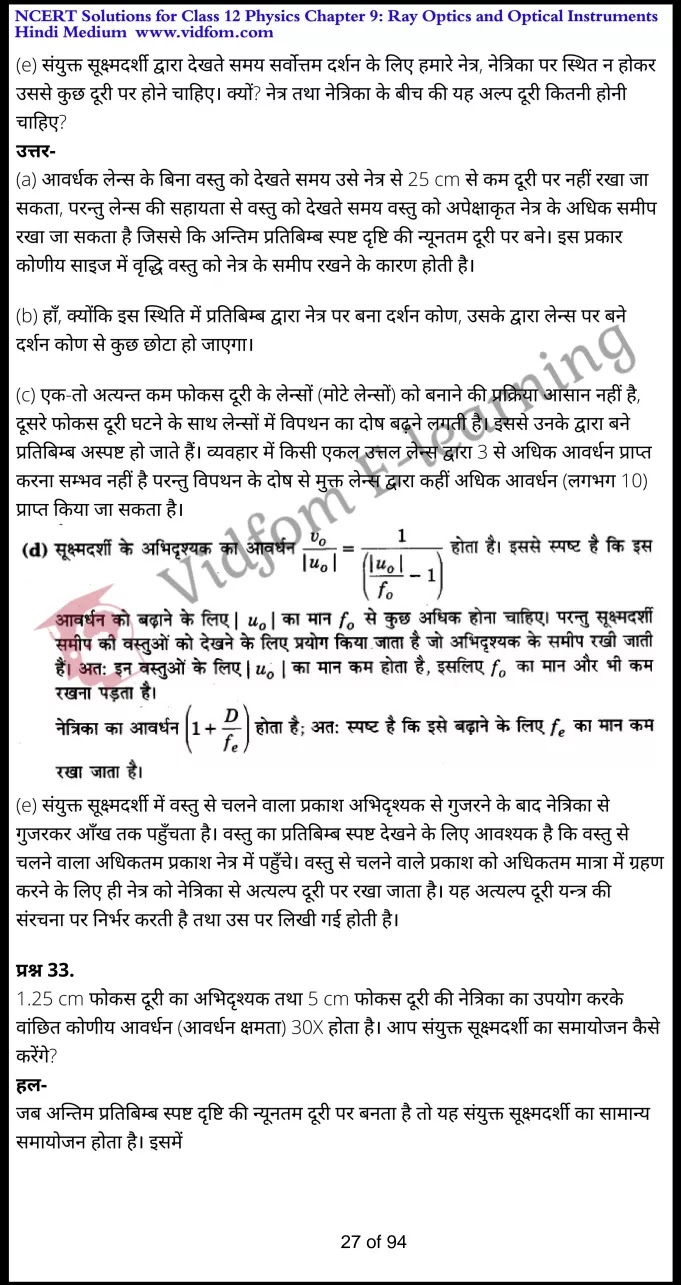 NCERT Solutions for Class 12 Physics Chapter 9: Ray Optics and Optical Instruments
Hindi Medium www.vidfom.com
(e) संयुक्त सूक्ष्मदर्शी द्वारा देखते समय सर्वोत्तम दर्शन के लिए हमारे नेत्र, नेत्रिका पर स्थित न होकर
उससे कुछ दूरी पर होने चाहिए। क्यों? नेत्र तथा नेत्रिका के बीच की यह अल्प दूरी कितनी होनी
चाहिए?
उत्तर-
(a) आवर्धक लेन्स के बिना वस्तु को देखते समय उसे नेत्र से 25 cm से कम दूरी पर नहीं रखा जा
सकता, परन्तु लेन्स की सहायता से वस्तु को देखते समय वस्तु को अपेक्षाकृत नेत्र के अधिक समीप
रखा जा सकता है जिससे कि अन्तिम प्रतिबिम्ब स्पष्ट दृष्टि की न्यूनतम दूरी पर बने। इस प्रकार
कोणीय साइज में वृद्धि वस्तु को नेत्र के समीप रखने के कारण होती है।
(b) हाँ, क्योंकि इस स्थिति में प्रतिबिम्ब द्वारा नेत्र पर बना दर्शन कोण, उसके द्वारा लेन्स पर बने
दर्शन कोण से कुछ छोटा हो जाएगा।
(c) एक-तो अत्यन्त कम फोकस दूरी के लेन्सों (मोटे लेन्सों) को बनाने की प्रक्रिया आसान नहीं है,
दूसरे फोकस दूरी घटने के साथ लेन्सों में विपथन का दोष बढ़ने लगती है। इससे उनके द्वारा बने
प्रतिबिम्ब अस्पष्ट हो जाते हैं। व्यवहार में किसी एकल उत्तल लेन्स द्वारा 3 से अधिक आवर्धन प्राप्त
करना सम्भव नहीं है परन्तु विपथन के दोष से मुक्त लेन्स द्वारा कहीं अधिक आवर्धन (लगभग 10)
प्राप्त किया जा सकता है।
(d) सूक्ष्मदर्शी के अभिदृश्यक का आवर्धन v_o/|u_o| = 1/(|u_o|/f_o - 1) होता है। इससे स्पष्ट है कि इस
आवर्धन को बढ़ाने के लिए | u_o | का मान f_o से कुछ अधिक होना चाहिए। परन्तु सूक्ष्मदर्शी
समीप की वस्तुओं को देखने के लिए प्रयोग किया जाता है जो अभिदृश्यक के समीप रखी जाती
हैं। अत: इन वस्तुओं के लिए | u_o | का मान कम होता है, इसलिए f_o का मान और भी कम
रखना पड़ता है।
नेत्रिका का आवर्धन (1 + D/f_e) होता है; अत: स्पष्ट है कि इसे बढ़ाने के लिए f_e का मान कम
रखा जाता है।
(e) संयुक्त सूक्ष्मदर्शी में वस्तु से चलने वाला प्रकाश अभिदृश्यक से गुजरने के बाद नेत्रिका से
गुजरकर आँख तक पहुँचता है। वस्तु का प्रतिबिम्ब स्पष्ट देखने के लिए आवश्यक है कि वस्तु से
चलने वाला अधिकतम प्रकाश नेत्र में पहुँचे। वस्तु से चलने वाले प्रकाश को अधिकतम मात्रा में ग्रहण
करने के लिए ही नेत्र को नेत्रिका से अत्यल्प दूरी पर रखा जाता है। यह अत्यल्प दूरी यन्त्र की
संरचना पर निर्भर करती है तथा उस पर लिखी गई होती है।
प्रश्न 33.
1.25 cm फोकस दूरी का अभिदृश्यक तथा 5 cm फोकस दूरी की नेत्रिका का उपयोग करके
वांछित कोणीय आवर्धन (आवर्धन क्षमता) 30X होता है। आप संयुक्त सूक्ष्मदर्शी का समायोजन कैसे
करेंगे?
हल-
जब अन्तिम प्रतिबिम्ब स्पष्ट दृष्टि की न्यूनतम दूरी पर बनता है तो यह संयुक्त सूक्ष्मदर्शी का सामान्य
समायोजन होता है। इसमें
27 of 94
Vidfom E-learning